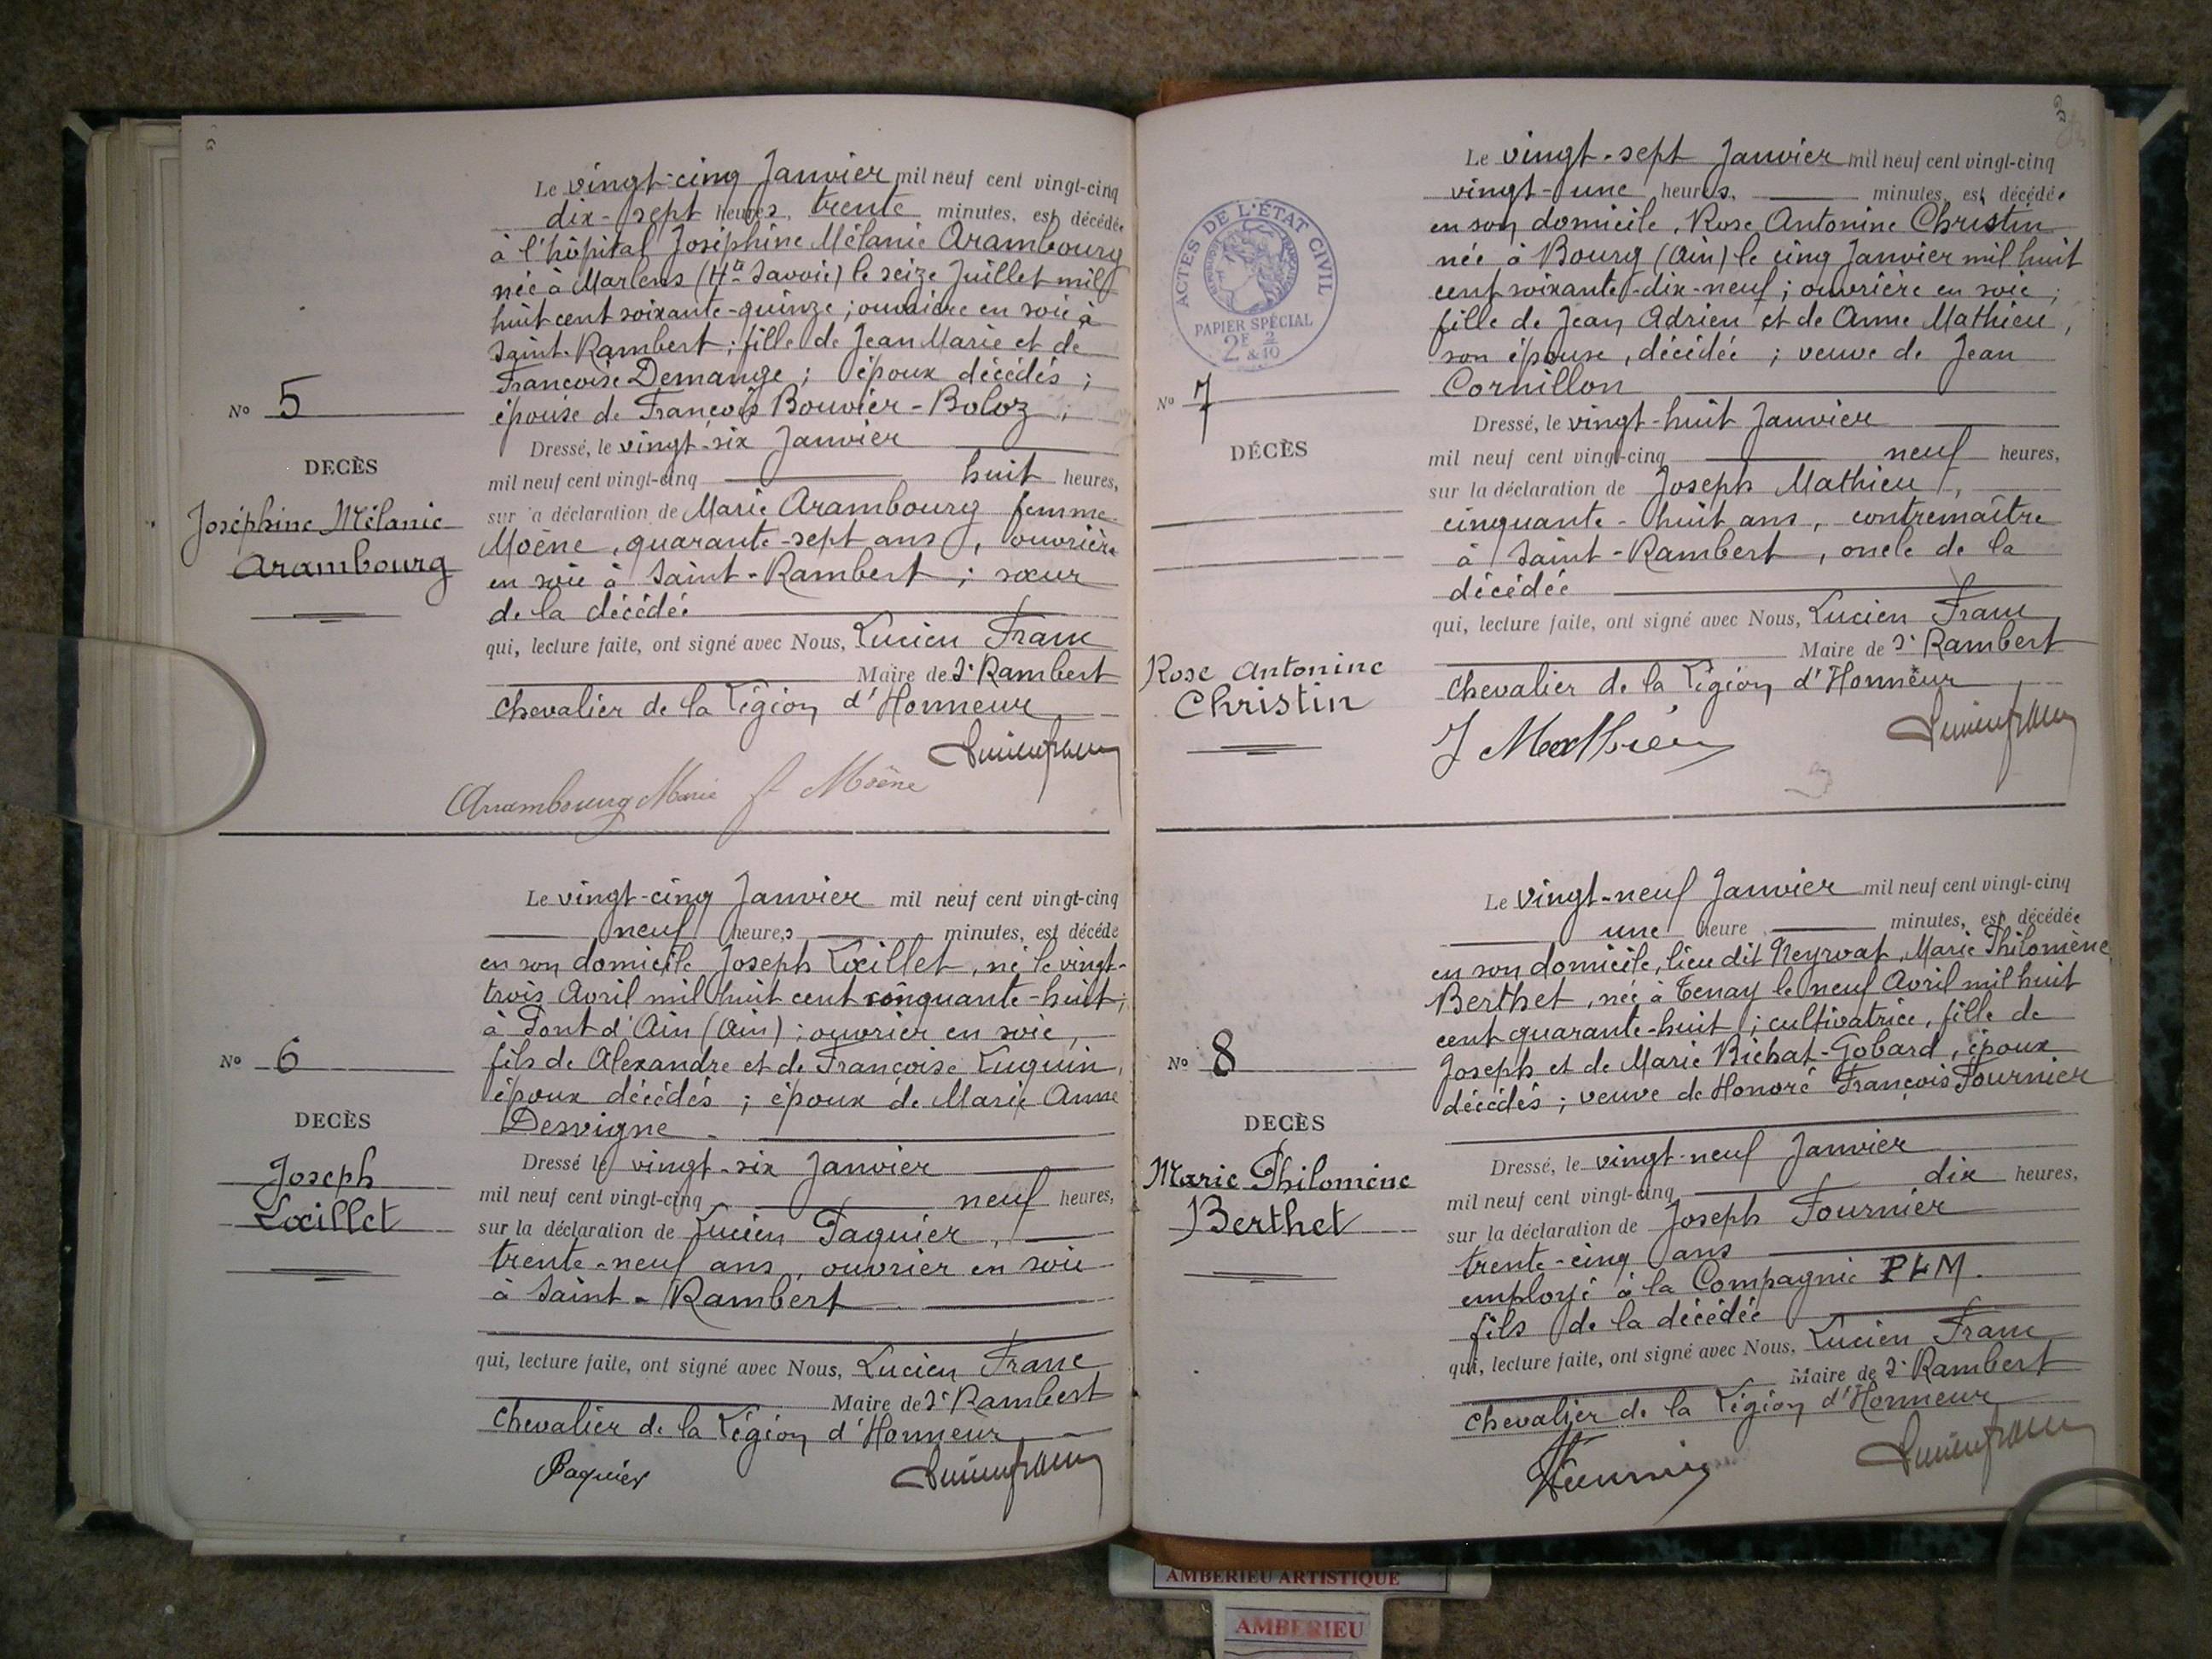 Le vingt-cinq Janvier mil neuf cent vingt-cinq
dix-sept heures, trente minutes, est décédée
à l'hôpital Joséphine Mélanie Arambourg
née à Marlens (Hte Savoie) le seize Juillet mil
huit cent soixante-quinze ; ouvrière en soie à
Saint-Rambert ; fille de Jean Marie et de
Françoise Demange ; époux décédés ;
épouse de François Bouvier-Boloz ;
No 5
DECÈS
Joséphine Mélanie
Arambourg
Dressé, le vingt-six Janvier
mil neuf cent vingt-cinq huit heures,
sur a déclaration de Marie Arambourg femme
Moëne, quarante-sept ans, ouvrière
en soie à Saint-Rambert ; sœur
de la décédée
qui, lecture faite, ont signé avec Nous, Lucien Franc
Maire de St Rambert
Chevalier de la Légion d'Honneur
Lucien franc
Arambourg Marie f Moëne
Le vingt-cinq Janvier mil neuf cent vingt-cinq
neuf heures minutes, est décédé
en son domicile Joseph Lœillet, né le vingt-
trois Avril mil huit cent cinquante-huit ;
à Pont d'Ain (Ain) ; ouvrier en soie,
fils de Alexandre et de Françoise Luquin,
époux décédés ; époux de Marie Anne
Desvigne
No 6
DECÈS
Joseph
Lœillet
Dressé le vingt-six Janvier
mil neuf cent vingt-cinq neuf heures,
sur la déclaration de Lucien Paquier,
trente-neuf ans, ouvrier en soie
à Saint-Rambert
qui, lecture faite, ont signé avec Nous, Lucien Franc
Maire de St Rambert
Chevalier de la Légion d'Honneur
Paquier
Lucien franc
3
ACTES DE L'ÉTAT CIVIL
PAPIER SPÉCIAL
2F & 2/10
Le vingt-sept Janvier mil neuf cent vingt-cinq
vingt-une heures, minutes, est décédée
en son domicile, Rose Antonine Christin
née à Bourg (Ain) le cinq Janvier mil huit
cent soixante-dix-neuf ; ouvrière en soie ;
fille de Jean Adrien et de Anne Mathieu,
son épouse, décédée ; veuve de Jean
Cornillon
No 7
DÉCÈS
Rose Antonine
Christin
Dressé, le vingt-huit Janvier
mil neuf cent vingt-cinq neuf heures,
sur la déclaration de Joseph Mathieu,
cinquante-huit ans, contremaître
à Saint-Rambert, oncle de la
décédée
qui, lecture faite, ont signé avec Nous, Lucien Franc
Maire de St Rambert
Chevalier de la Légion d'Honneur
J Mathieu
Lucien franc
Le vingt-neuf Janvier mil neuf cent vingt-cinq
une heure minutes, est décédée
en son domicile, lieu dit Neyrvat, Marie Philomène
Berthet, née à Tenay le neuf Avril mil huit
cent quarante-huit ; cultivatrice, fille de
Joseph et de Marie Bichat-Gobard, époux
décédés ; veuve de Honoré François Fournier
No 8
DECÈS
Marie Philomène
Berthet
Dressé, le vingt-neuf Janvier
mil neuf cent vingt-cinq dix heures,
sur la déclaration de Joseph Fournier
trente-cinq ans
employé à la Compagnie PLM.
fils de la décédée
qui, lecture faite, ont signé avec Nous, Lucien Franc
Maire de St Rambert
Chevalier de la Légion d'Honneur
Fournier
Lucien franc
AMBERIEU ARTISTIQUE
AMBERIEU